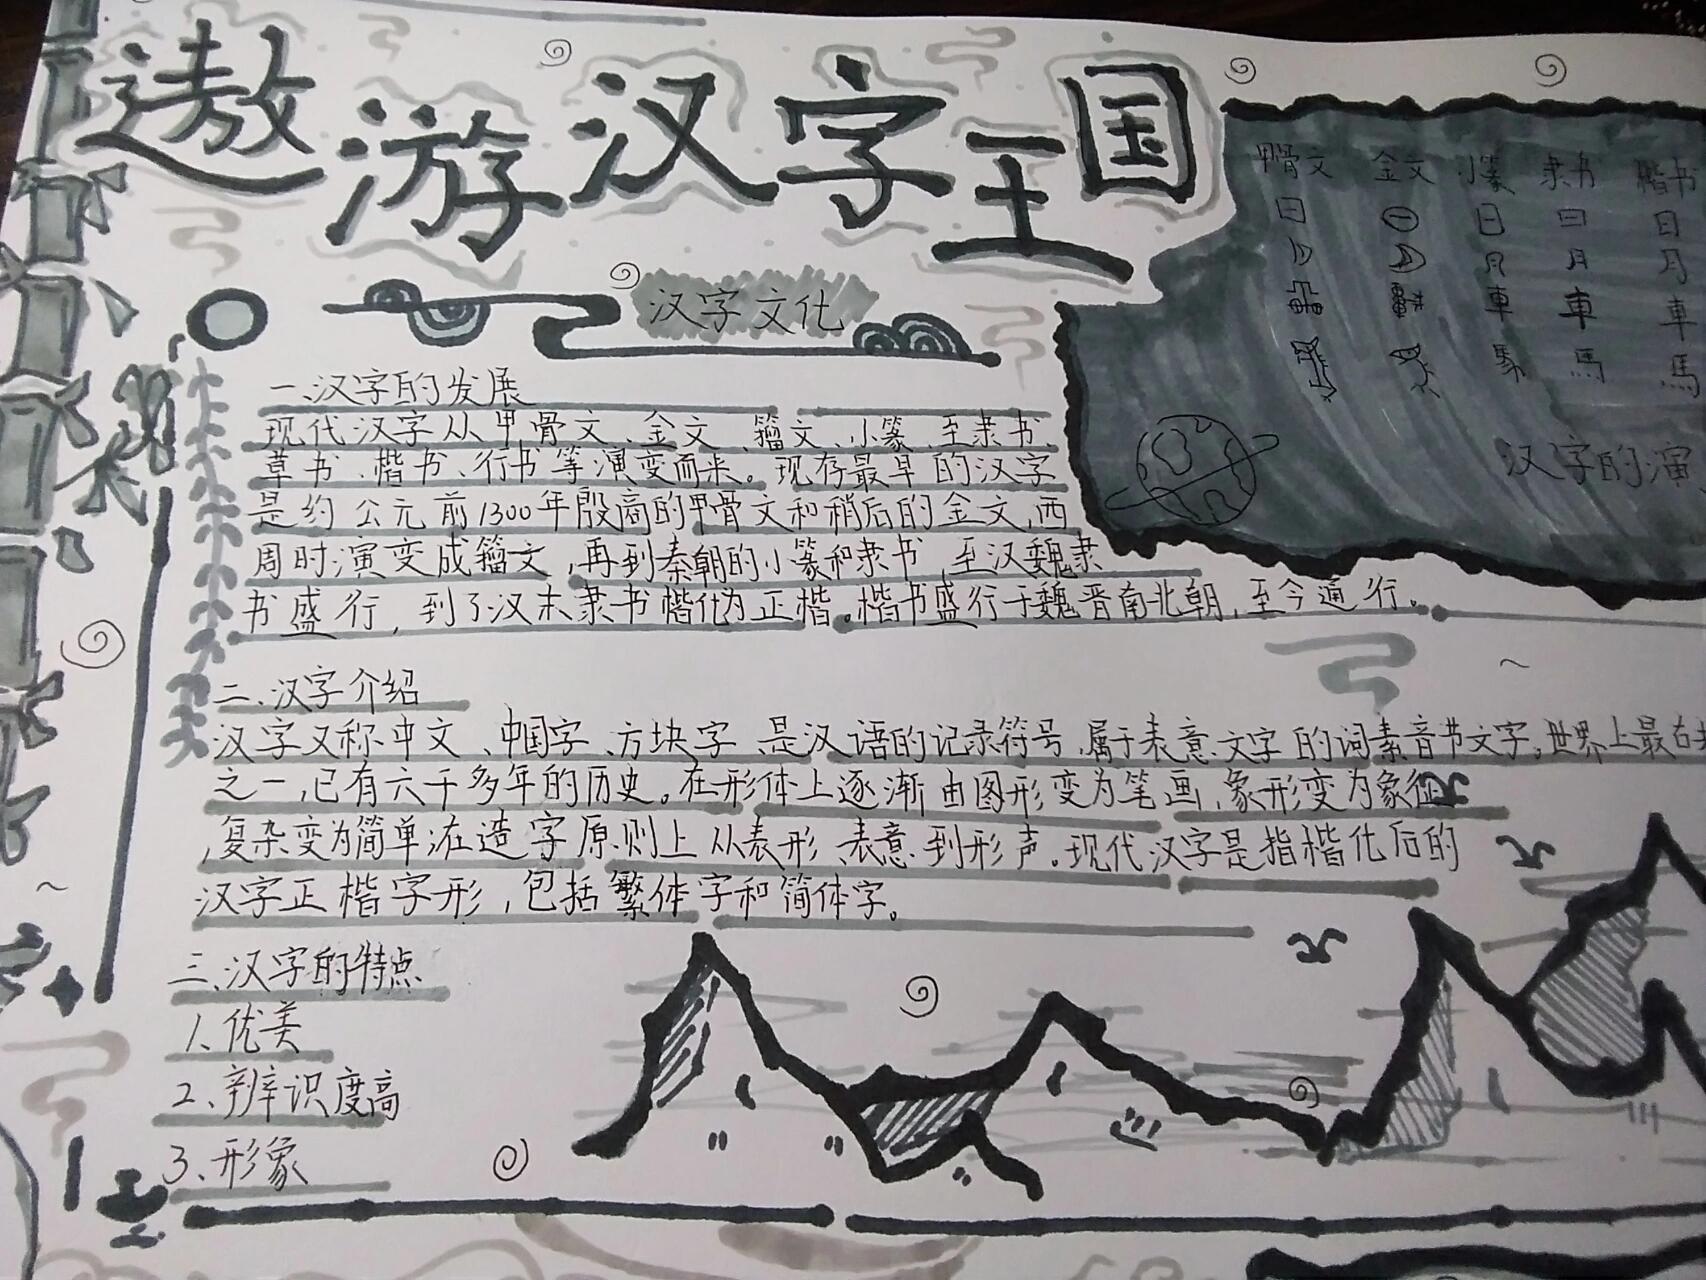 遨游汉字王国
汉字文化
一、汉字的发展
现代汉字从甲骨文、金文、籀文、小篆、至隶书、
草书、楷书、行书等演变而来。现存最早的汉字
是约公元前1300年殷商的甲骨文和稍后的金文,西
周时演变成籀文,再到秦朝的小篆和隶书,至汉魏隶
书盛行,到了汉末隶书楷化为正楷。楷书盛行于魏晋南北朝,至今通行。
二、汉字介绍
汉字又称中文、中国字、方块字、是汉语的记录符号,属于表意文字的词素音节文字,世界上最古
之一,已有六千多年的历史。在形体上逐渐由图形变为笔画,象形变为象征
,复杂变为简单;在造字原则上从表形、表意到形声。现代汉字是指楷化后的
汉字正楷字形,包括繁体字和简体字。
三、汉字的特点
1、优美
2、辨识度高
3、形象
甲骨文 金文 小篆 隶书 楷书
日 日 日 日 日
月 月 月 月 月
車 車 車 車 車
馬 馬 馬 馬 馬
汉字的演